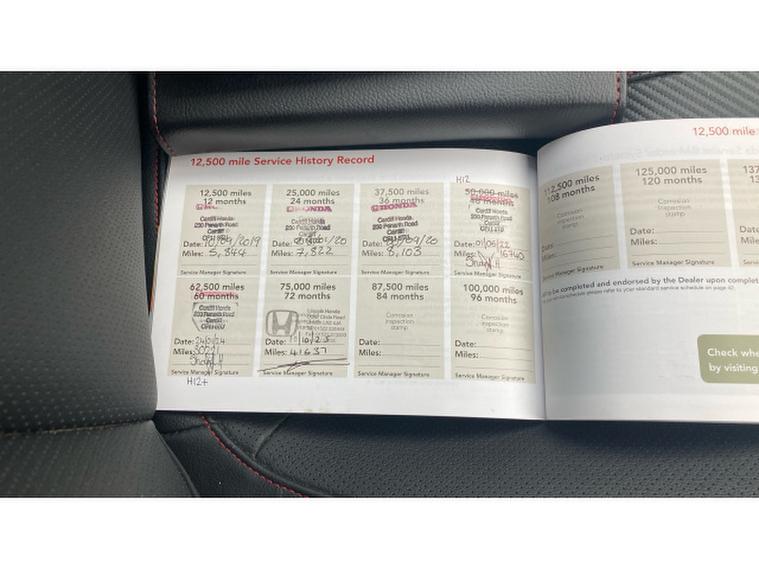 12,500 mile Service History Record
12,500 mile
H12
12,500 miles
12 months
Cardiff Honda
230 Penarth Road
Cardiff
Date: 10/09/2019
Miles: 5,344
Service Manager Signature
25,000 miles
24 months
HONDA
Cardiff Honda
230 Penarth Road
Cardiff
Date: /20
Miles: 7,822
Service Manager Signature
37,500 miles
36 months
HONDA
Cardiff Honda
230 Penarth Road
Cardiff
Date: /09/20
Miles: 8,103
Service Manager Signature
50,000 miles
48 months
Cardiff Honda
230 Penarth Road
Cardiff
Date: 01/06/22
Miles: 16740
Service Manager Signature
62,500 miles
60 months
Cardiff Honda
230 Penarth Road
Cardiff
Date:
Miles:
Service Manager Signature
H12+
75,000 miles
72 months
Lincoln Honda
Date: 11/10/25
Miles: 41637
Service Manager Signature
87,500 miles
84 months
Corrosion
inspection
stamp
Date:
Miles:
Service Manager Signature
100,000 miles
96 months
Corrosion
inspection
stamp
Date:
Miles:
Service Manager Signature
112,500 miles
108 months
Corrosion
inspection
stamp
Date:
Miles:
Service Manager Signature
125,000 miles
120 months
Corrosion
inspection
stamp
Date:
Miles:
Service Manager Signature
137
13
Date:
Miles:
to be completed and endorsed by the Dealer upon complet
please refer to your standard service schedule on page 42.
Check whe
by visiting